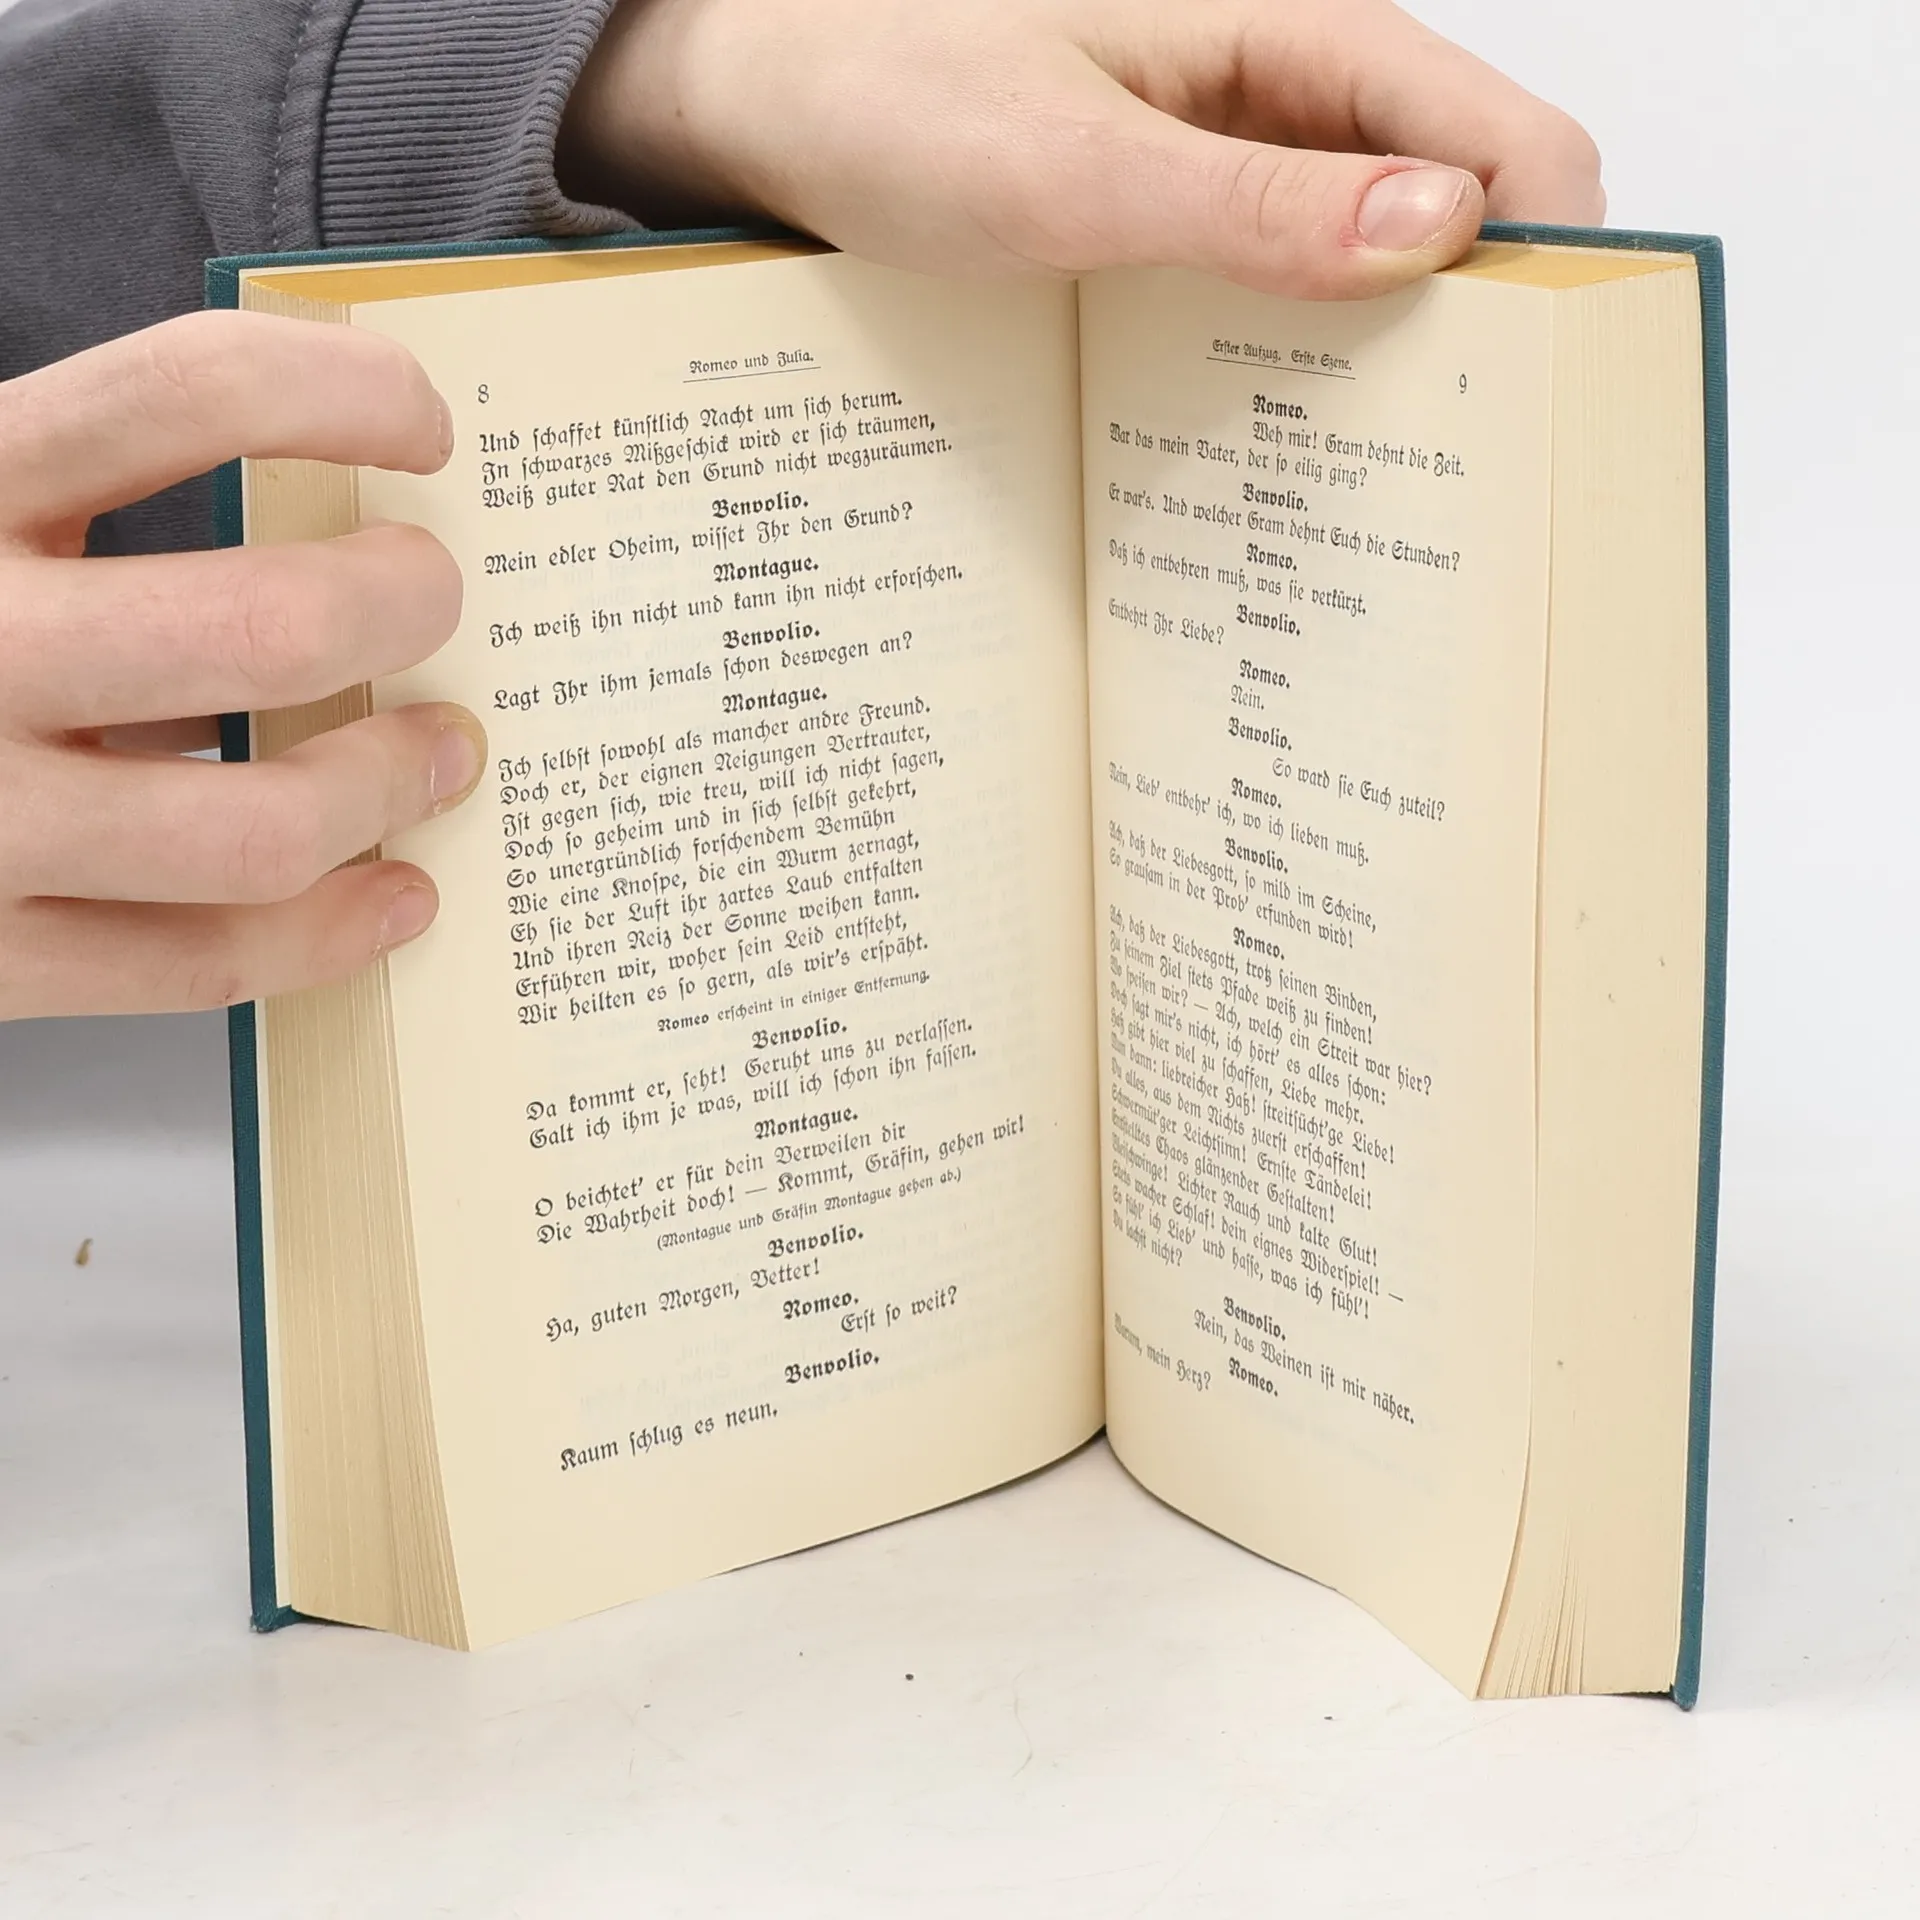 8
Romeo und Julia.
Und schaffet künstlich Nacht um sich herum.
In schwarzes Mißgeschick wird er sich träumen,
Weiß guter Rat den Grund nicht wegzuräumen.
Benvolio.
Mein edler Oheim, wisset Ihr den Grund?
Montague.
Ich weiß ihn nicht und kann ihn nicht erforschen.
Benvolio.
Lagt Ihr ihm jemals schon deswegen an?
Montague.
Ich selbst sowohl als mancher andre Freund.
Doch er, der eignen Neigungen Vertrauter,
Ist gegen sich, wie treu, will ich nicht sagen,
Doch so geheim und in sich selbst gekehrt,
So unergründlich forschendem Bemühn
Wie eine Knospe, die ein Wurm zernagt,
Eh sie der Luft ihr zartes Laub entfalten
Und ihren Reiz der Sonne weihen kann.
Erführen wir, woher sein Leid entsteht,
Wir heilten es so gern, als wir's erspäht.
Romeo erscheint in einiger Entfernung.
Benvolio.
Da kommt er, seht! Geruht uns zu verlassen.
Galt ich ihm je was, will ich schon ihn fassen.
Montague.
O beichtet' er für dein Verweilen dir
Die Wahrheit doch! — Kommt, Gräfin, gehen wir!
(Montague und Gräfin Montague gehen ab.)
Benvolio.
Ha, guten Morgen, Vetter!
Romeo.
Erst so weit?
Benvolio.
Kaum schlug es neun.
Erster Aufzug. Erste Szene.
9
Romeo.
Weh mir! Gram dehnt die Zeit.
War das mein Vater, der so eilig ging?
Benvolio.
Er war's. Und welcher Gram dehnt Euch die Stunden?
Romeo.
Daß ich entbehren muß, was sie verkürzt.
Benvolio.
Entbehrt Ihr Liebe?
Romeo.
Nein.
Benvolio.
So ward sie Euch zuteil?
Romeo.
Nein, Lieb' entbehr' ich, wo ich lieben muß.
Benvolio.
Ach, daß der Liebesgott, so mild im Scheine,
So grausam in der Prob' erfunden wird!
Romeo.
Ach, daß der Liebesgott, trotz seinen Binden,
Zu seinem Ziel stets Pfade weiß zu finden!
Wo speisen wir? — Ach, welch ein Streit war hier?
Doch sagt mir's nicht, ich hört' es alles schon:
Haß gibt hier viel zu schaffen, Liebe mehr.
Nun dann: liebreicher Haß! streitsücht'ge Liebe!
Du alles, aus dem Nichts zuerst erschaffen!
Schwermüt'ger Leichtsinn! Ernste Tändelei!
Entstelltes Chaos glänzender Gestalten!
Bleischwinge! Lichter Rauch und kalte Glut!
Stets wacher Schlaf! dein eignes Widerspiel! —
So fühl' ich Lieb' und hasse, was ich fühl'!
Du lachst nicht?
Benvolio.
Nein, das Weinen ist mir näher.
Romeo.
Warum, mein Herz?